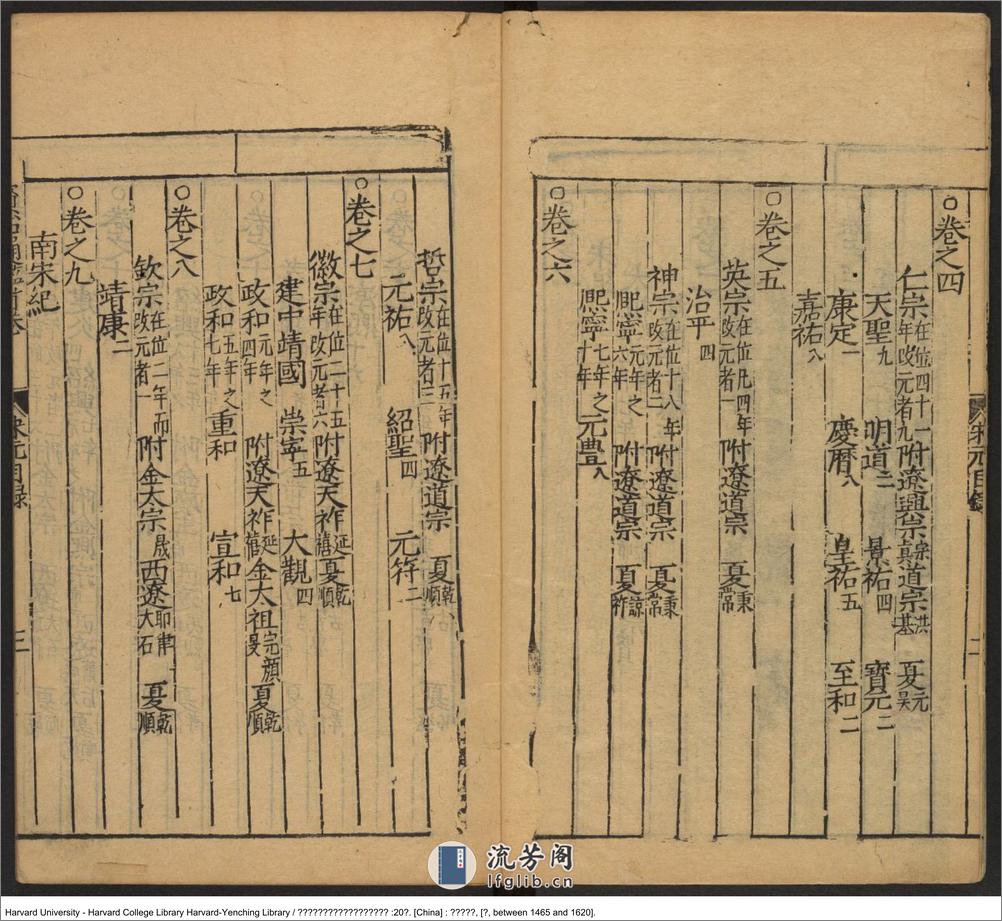 ○卷之四
仁宗在位四十一年改元者九附遼興宗宗真道宗洪基夏元昊
天聖九 明道二 景祐四 寶元二
康定一 慶曆八 皇祐五 至和二
嘉祐八
○卷之五
英宗在位凡四年改元者一附遼道宗 夏秉常
治平四
神宗在位十八年改元者二附遼道宗 夏秉常
熙寧元年之六年 附遼道宗 夏諒祚
熙寧七年之十年元豐八
○卷之六
哲宗在位十五年改元者三附遼道宗 夏乾順
元祐八 紹聖四 元符二
○卷之七
徽宗在位二十五年改元者六附遼天祚延禧夏乾順
建中靖國 崇寧五 大觀四
政和元年之四年 附遼天祚延禧金太祖完顏旻夏乾順
政和五年之七年重和 宣和七
○卷之八
欽宗在位二年而改元者一附金太宗晟西遼耶律大石 夏乾順
靖康二
○卷之九
南宋紀
宋元目錄 二
宋元目錄 三
流芳阁
lfglib.cn
Harvard University - Harvard College Library Harvard-Yenching Library / ?????????????????? :20?. [China] : ?????, [?, between 1465 and 1620].